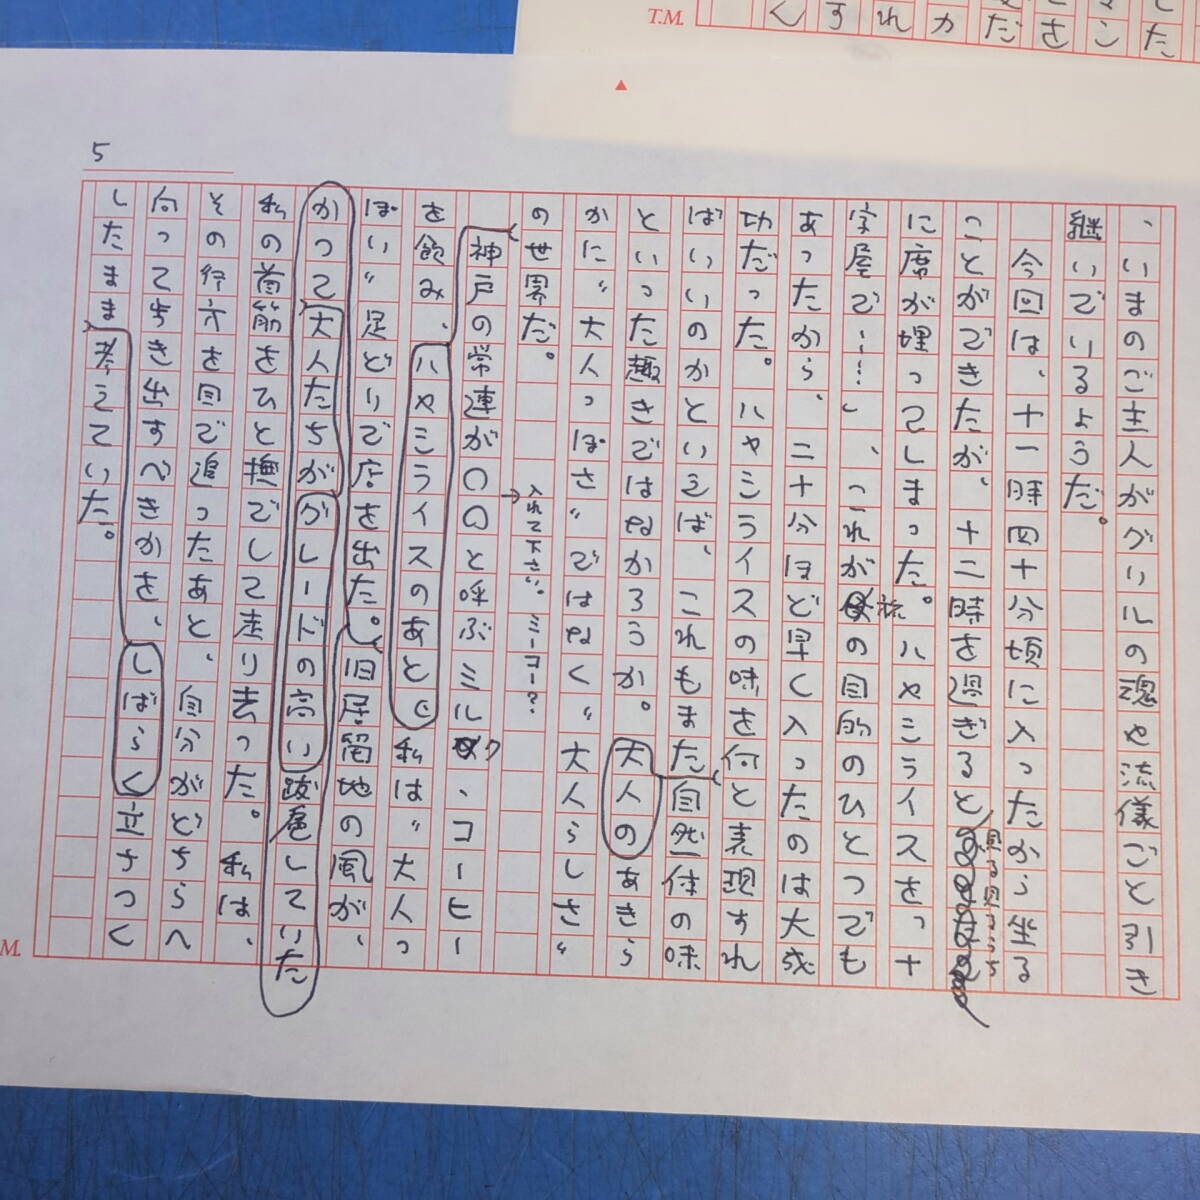 、いまのご主人がグリルの魂や流儀ごと引き
継いでいるようだ。
今回は、十一時四十分頃に入ったから坐る
ことができたが、十二時を過ぎると
見る見るうち
に席が埋ってしまった。ハヤミライスを「十
字屋で……」、これが
旅
の目的のひとつでも
あったから、二十分ほど早く入ったのは大成
功だった。ハヤミライスの味を何と表現すれ
ばいいのかといえば、これもまた自然体の味
といった趣きではなかろうか。大人のあきら
かに〝大人っぽさ〟ではなく〝大人らしさ〟
の世界だ。
→入れて下さい。ミーコー?
神戸の常連が〇〇と呼ぶミルク、コーヒー
を飲み、ハヤミライスのあとで私は〝大人っ
ぽい〟足どりで店を出た。旧居留地の風が、
かつて大人たちがグレードの高い跋扈していた
私の首筋をひと撫でして走り去った。私は、
その行方を目で追ったあと、自分がどちらへ
向って歩き出すべきかを、しばらく立ちつく
したまま考えていた。
5
T.M.
M.
した
こ
さ
だ
カ
れ
す
く